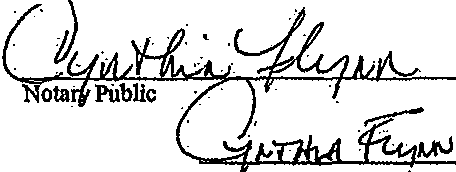 Cynthia Flynn
Notary Public
Cynthia Flynn